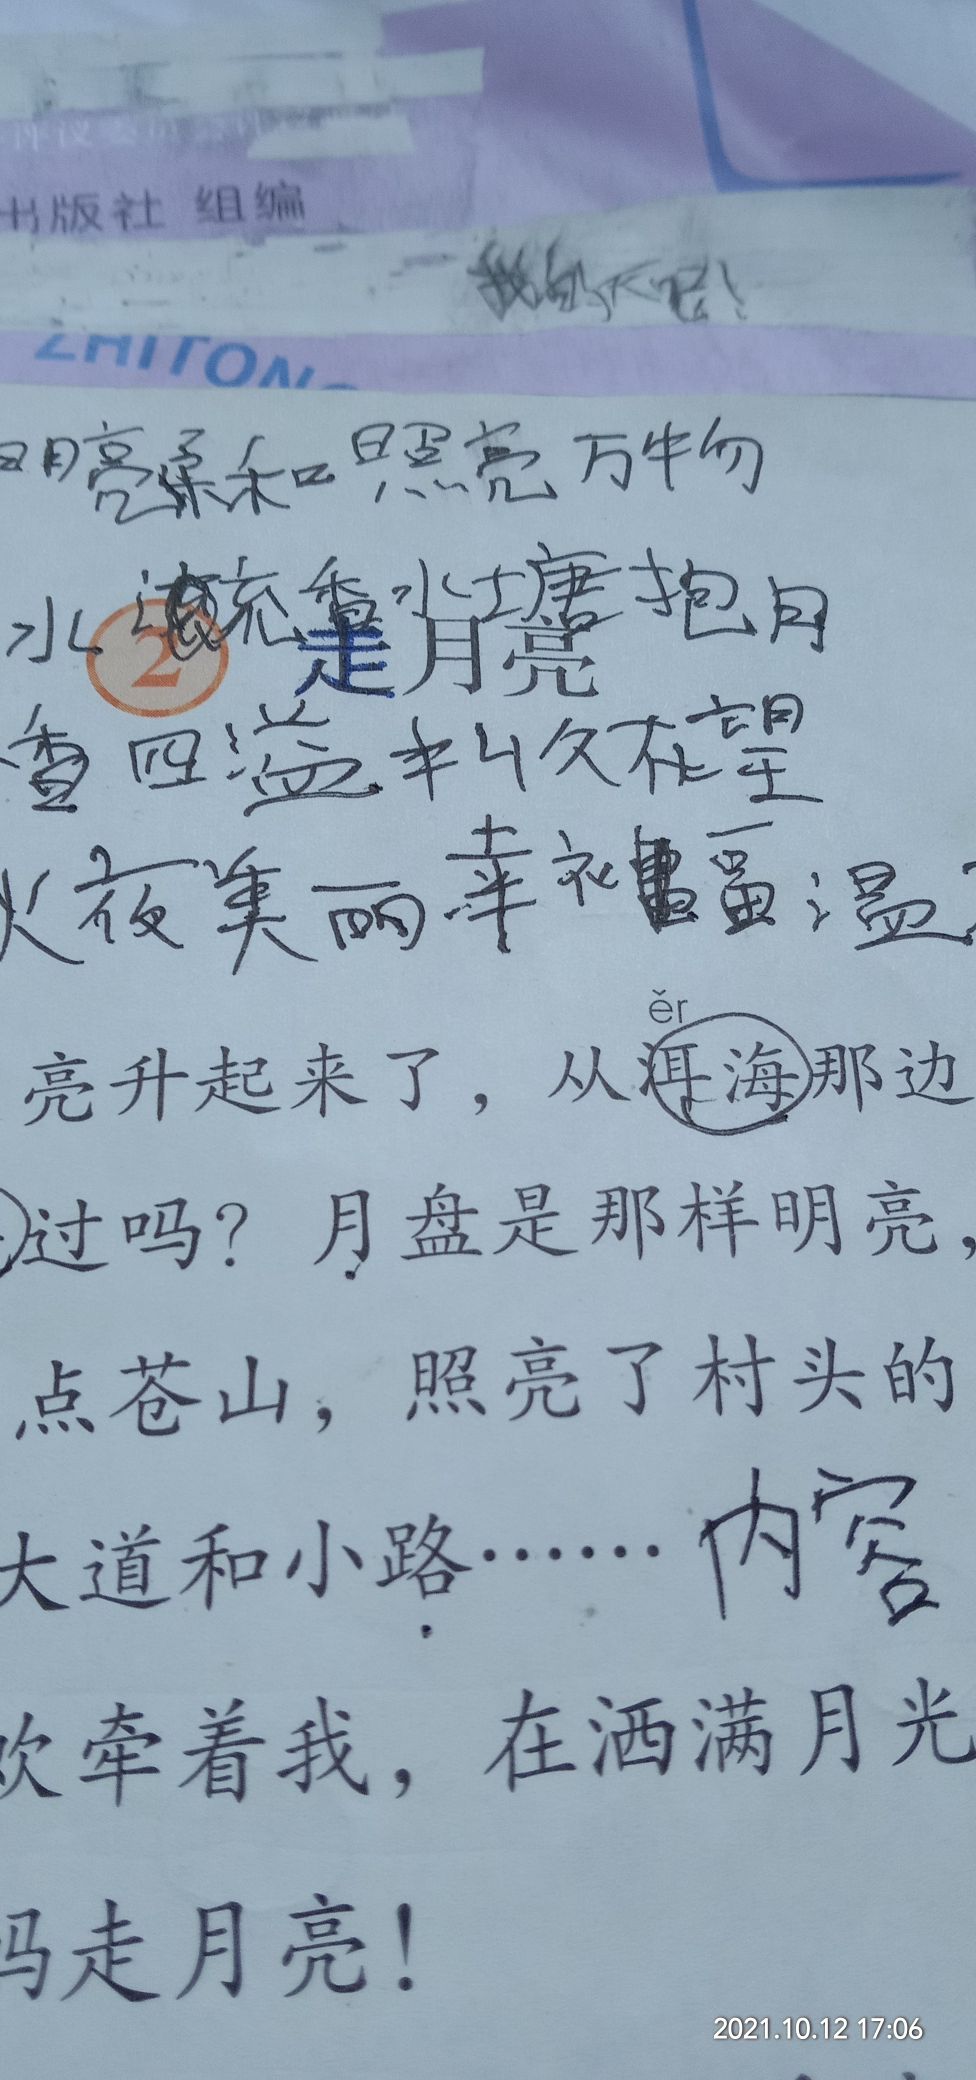 出版社 组编
我的天呀！
ZHITONG
明亮柔和 照亮万物
水流香 水塘抱月
2 走月亮
香四溢 丰收在望
秋夜美丽幸福温
亮升起来了，从洱海那边
ěr
过吗？月盘是那样明亮，
点苍山，照亮了村头的
大道和小路…… 内容
欢牵着我，在洒满月光
吗走月亮！
2021.10.12 17:06